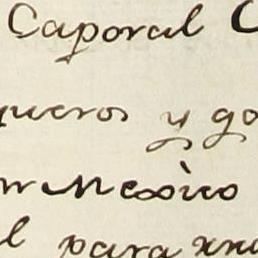 Caporal C
queros y go
n Mexico
l para